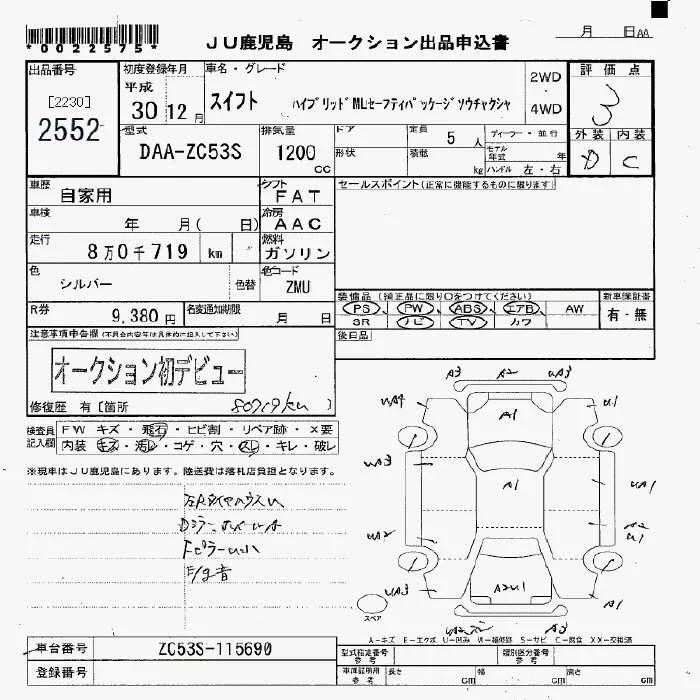 *0022575*
JU鹿児島 オークション出品申込書
月 日 AA
出品番号
[2230]
2552
初度登録年月
平成
30 12月
車名・グレード
スイフト ハイブリッドMLセーフティパッケージソウチャクシャ
2WD
・
4WD
評価点
3
外装 内装
D C
型式
DAA-ZC53S
排気量
1200
CC
ドア
形状
定員
5人
積載
kg
ディーラー・並行
モデル年式 年
ハンドル 左・右
車歴
自家用
シフト
FAT
セールスポイント(正常に機能するものに限ります)
車検
年 月( 日)
冷房
AAC
走行
8万0千719 km
燃料
ガソリン
色
シルバー
色替
色コード
ZMU
装備品(純正品に限り○をつけてください)
PS PW ABS エアB AW
SR ナビ TV カワ
新車保証書
有・無
R券
9,380円
名変通知期限
月 日
後日品
注意事項申告欄(不具合内容等は具体的に記入して下さい)
オークション初デビュー
修復歴 有[箇所
80719km )
検査員記入欄
FW キズ・飛石・ヒビ割・リペア跡・×要
内装 キズ・汚レ・コゲ・穴・スレ・キレ・破レ
※現車はJU鹿児島にあります。陸送費は落札店負担となります。
A3 A2 UA3
UA4 A1 U1
UA3 A1 UA1
UA2 A2
U1
UA3 A2U1 A1
スペア
A3
A-キズ E-エクボ U-凹み W-補修跡 S-サビ C-腐食 XX-交換済
車台番号
ZC53S-115690
登録番号
型式指定番号
参考
類別区分番号
参考
車庫証明用
参考
長さ cm 幅 cm 高さ cm